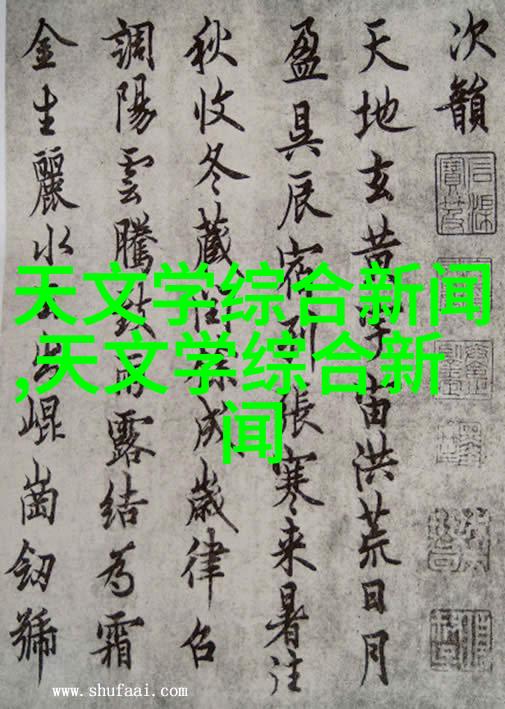 次韻
天地玄黄宇宙洪荒日月
盈昃辰宿列張寒来暑往
秋收冬藏閏餘成歲律召
調陽雲騰致雨露結為霜
金生麗水玉出崐崗劒號
天文学综合新闻
,天文学综合新
闻
www.shufaai.com